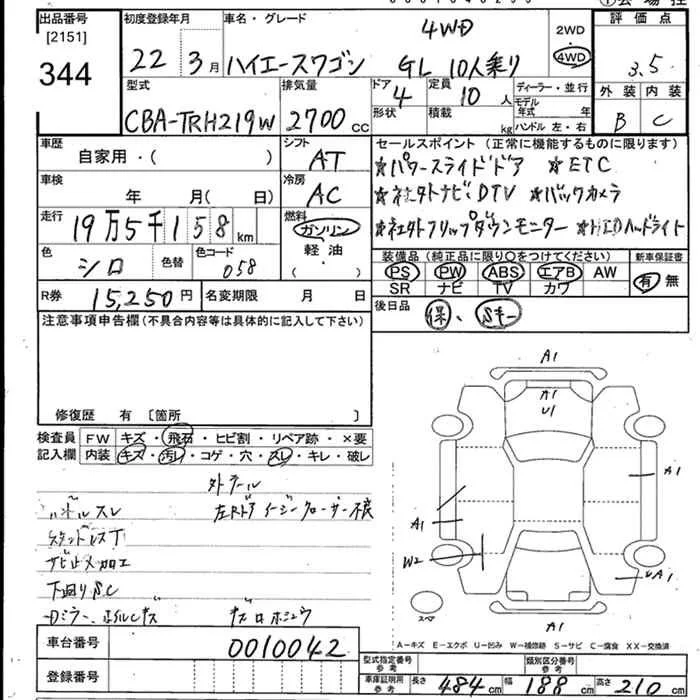 出品番号 [2151] 344
初度登録年月 22 3月
車名・グレード 4WD
ハイエースワゴン GL 10人乗り
2WD
4WD
評価点 3.5
外装 内装
B C
型式 CBA-TRH219W
排気量 2700cc
ドア 4
形状
定員 10人
積載 kg
ディーラー・並行
モデル年式 年
ハンドル 左・右
車歴 自家用・( )
シフト AT
車検 年 月( 日)
冷房 AC
走行 19万5千158km
燃料 ガソリン
軽油
・( )
色 シロ
色替
色コード 058
セールスポイント (正常に機能するものに限ります)
☆パワースライドドア ☆ETC
☆社外ナビ・DTV ☆バックカメラ
☆社外フリップダウンモニター ☆HIDヘッドライト
装備品 (純正品に限り○をつけてください)
PS PW ABS エアB AW
SR ナビ TV カワ
新車保証書
有 無
R券 15,250円
名変期限 月 日
後日品 保、Sキー
注意事項申告欄(不具合内容等は具体的に記入して下さい)
修復歴 有 〔箇所 〕
検査員記入欄
FW キズ・飛石・ヒビ割・リペア跡・×要
内装 キズ・汚レ・コゲ・穴・スレ・キレ・破レ
ハンドルスレ
左Rドアイージークローザー不良
サビ止メ加工
下回りS.C
Dミラー、ホイルキズ
車台番号 0010042
登録番号
A1
A1
U1
A1
A1
W2
UA1
A1
スペア
A－キズ E－エクボ U－凹み W－補修跡 S－サビ C－腐食 XX－交換済
型式指定番号 参考
類別区分番号 参考
車庫証明用 参考 長さ 484cm 幅 188cm 高さ 210cm